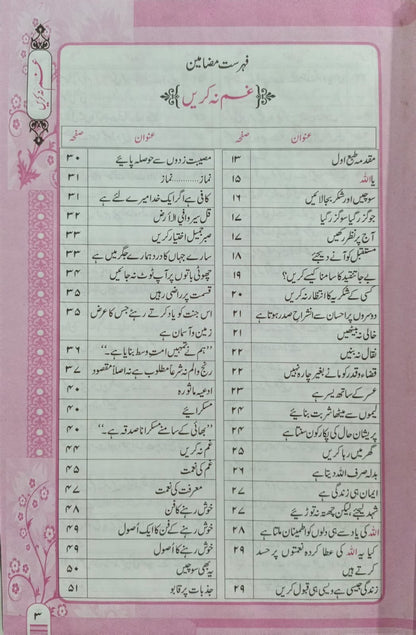 فہرست مضامین
غم نہ کریں
عنوان صفحہ
مقدمہ طبع اول ۱۳
یا اللہ ۱۵
سوچیں اور شکر بجا لائیں ۱۶
جو گزر گیا سو گزر گیا ۱۷
آج پر نظر رکھیں ۱۷
مستقبل کو آنے دیجئے ۱۸
بے جا تنقید کا سامنا کیسے کریں؟ ۱۹
کسی کے شکریہ کا انتظار نہ کریں ۲۰
دوسروں پر احسان سے انشراح صدر ہوتا ہے ۲۱
خالی نہ بیٹھیں ۲۱
نقال نہ بنیں ۲۲
قضاء و قدر کو مانے بغیر چارہ نہیں ۲۲
عسر کے ساتھ یسر ہے ۲۳
لیموں سے میٹھا شربت بنائیے ۲۴
پریشان حال کی پکار کون سنتا ہے ۲۴
گھر میں رہا کریں ۲۵
بدلہ صرف اللہ دیتا ہے ۲۶
ایمان ہی زندگی ہے ۲۷
شہد لیجئے لیکن چھتہ نہ توڑیئے ۲۷
اللہ کی یاد سے ہی دلوں کو اطمینان ملتا ہے ۲۸
کیا یہ اللہ کی عطا کردہ نعمتوں پر حسد کرتے ہیں ۲۹
زندگی جیسی ہے ویسی ہی قبول کریں ۲۹
عنوان صفحہ
مصیبت زدوں سے حوصلہ پائیے ۳۰
نماز.........نماز ۳۱
کافی ہے اگر ایک خدا میرے لئے ہے ۳۱
قل سیروا فی الارض ۳۲
صبر جمیل اختیار کریں ۳۳
سارے جہاں کا درد ہمارے جگر میں ہے ۳۳
چھوٹی باتوں پر آپ ٹوٹ نہ جائیں ۳۴
قسمت پر راضی رہیں ۳۵
اس جنت کو یاد کرتے رہئے جس کا عرض ۳۵
زمین و آسمان ہے
’’ہم نے تمہیں امت وسط بنایا ہے۔‘‘ ۳۶
رنج و الم نہ شرعاً مطلوب ہے نہ اصلاً مقصود ۳۷
ادعیہ ماثورہ ۴۰
مسکرائیے ۴۰
’’بھائی کے سامنے مسکرانا صدقہ ہے۔‘‘ ۴۰
غم نہ کریں ۴۴
غم کی نعمت ۴۵
معرفت کی نعمت ۴۷
خوش رہنے کا فن ۴۸
خوش رہنے کے فن کا ایک اُصول ۴۹
خوش رہنے کا اُصول ۴۹
یہ بھی سوچیں ۵۰
جذبات پر قابو ۵۱
غم نہ کریں
۳